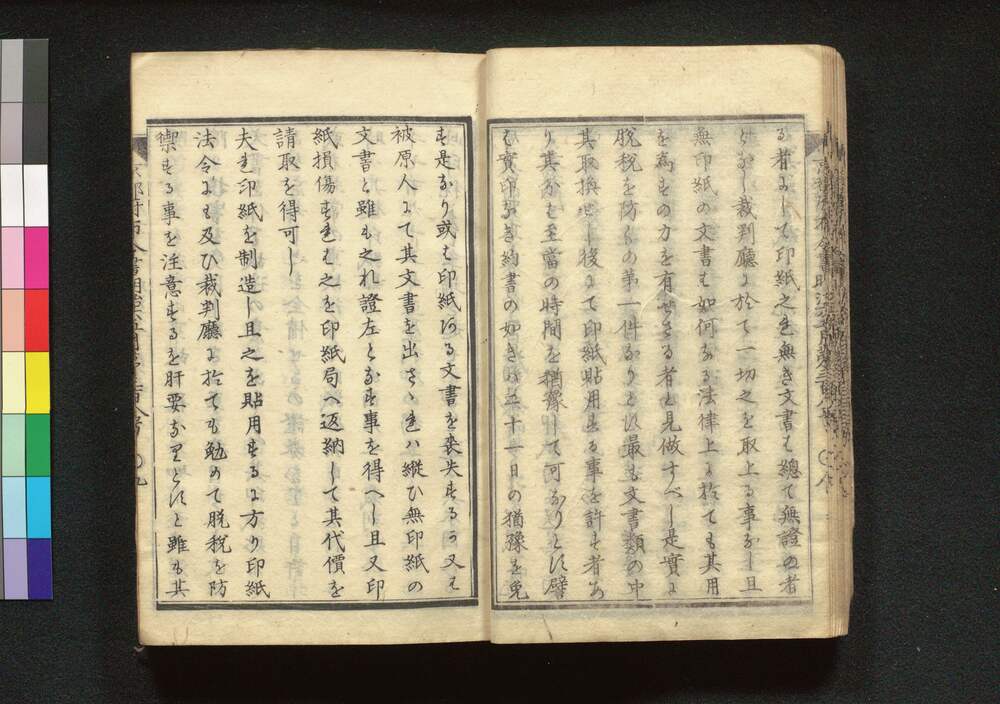 る者にして印紙之れ無き文書は總て無證の者
となし裁判廳に於て一切之を取上る事なし且
無印紙の文書は如何なる法律上に於ても其用
を為すの力を有せさる者と見做すべし是實に
脱税を防くの第一件なりとす最も文書類の中
其取換せし後にて印紙貼用する事を許す者あ
り其分は至當の時間を猶豫して可なりとす譬
は實印なき約書の如きは二十一日の猶豫を免
す是なり或は印紙ある文書を喪失するか又は
被原人にて其文書を出さゝれハ縦ひ無印紙の
文書と雖もこれ證左となす事を得へし且又印
紙損傷すれは之を印紙局へ返納して其代價を
請取を得可し
夫れ印紙を制造し且之を貼用するに方り印紙
法令にも及ひ裁判廳に於ても勉めて脱税を防
禦する事を注意するを肝要なりとすと雖も其